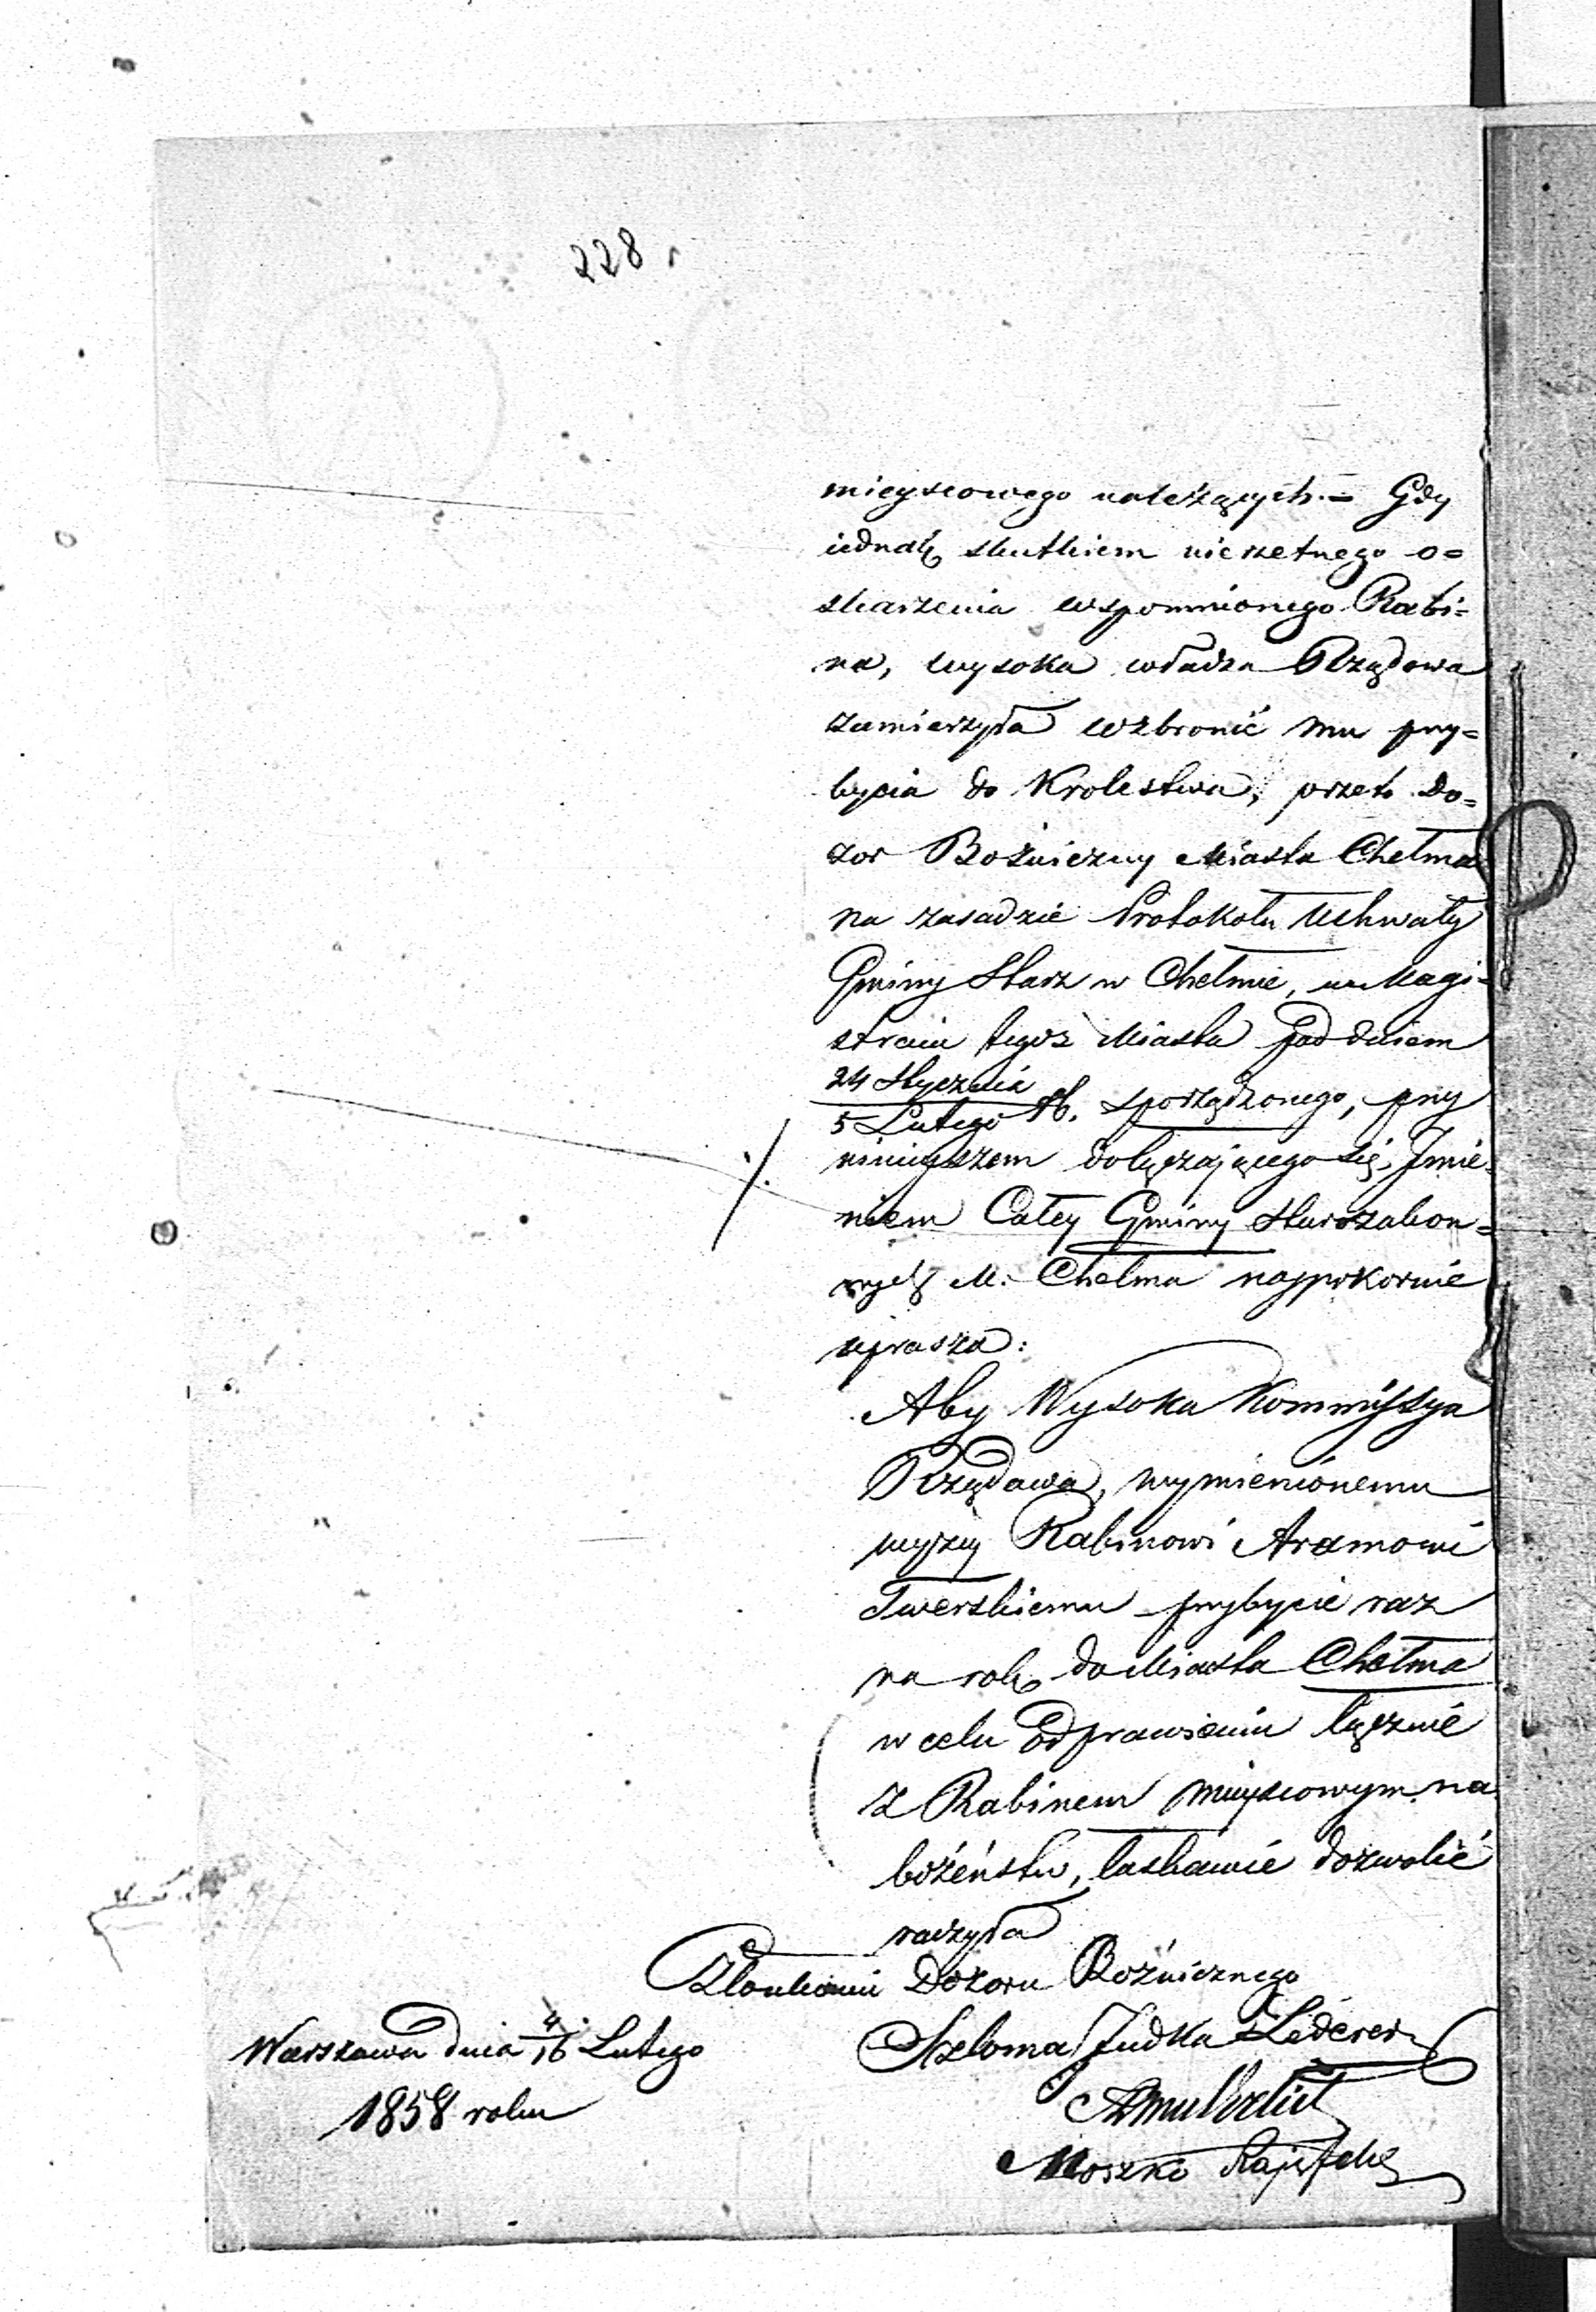 228
mieyscowego należących. = Gdy
iednak skutkiem nierzetnego o=
skarzenia wspomnionego Rabi=
na, wysoka władza Rządowa
zamierzyła wzbronić mu przy=
bycia do Krolestwa, przeto Do=
zor Bożniczny Miasta Chełma
na zasadzie Protokołu Uchwały
Gminy Starz w Chełmie, w Magi=
stracie tegoż Miasta pod dniem
24 Stycznia
5 Lutego rb. sporządzonego, przy
ninieyszem dołączającego się, Jmie=
niem Całey Gminy Starozakon=
nych M. Chełma naypokornie
uprasza:
Aby Wysoka Kommissya
Rządowa, wymienionemu
wyżey Rabinowi Aramowi
Twerskiemu przybycie raz
na rok do Miasta Chełma
w celu odprawienia łącznie
z Rabinem mieyscowym na
bożeństw, łaskawie dozwolić
raczyła
Członkowie Dozoru Bożnicznego
Warszawa dnia 4/16 Lutego
1858 roku
Szloma Judka Lederer
Moszko